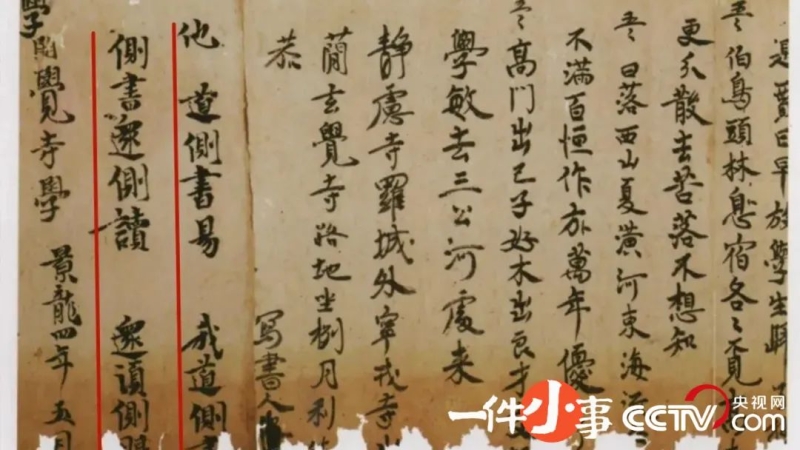 是賈日早放學生歸
伯鳥頭林息宿各〻覓
更分散去苦落不想知
日落西山夏潢河東海流
不滿百恒作万萬年優
高門出己子好木出良才
學敏去三公河處来
静慮寺羅城外寧戎寺
蕳玄覺寺路地坐捌月利
恭 寫書人
他 道側書易 我道側書
側書還側讀 還須側眼
覺寺學 景龍四年五月
一件小事
CCTV 央视网
com